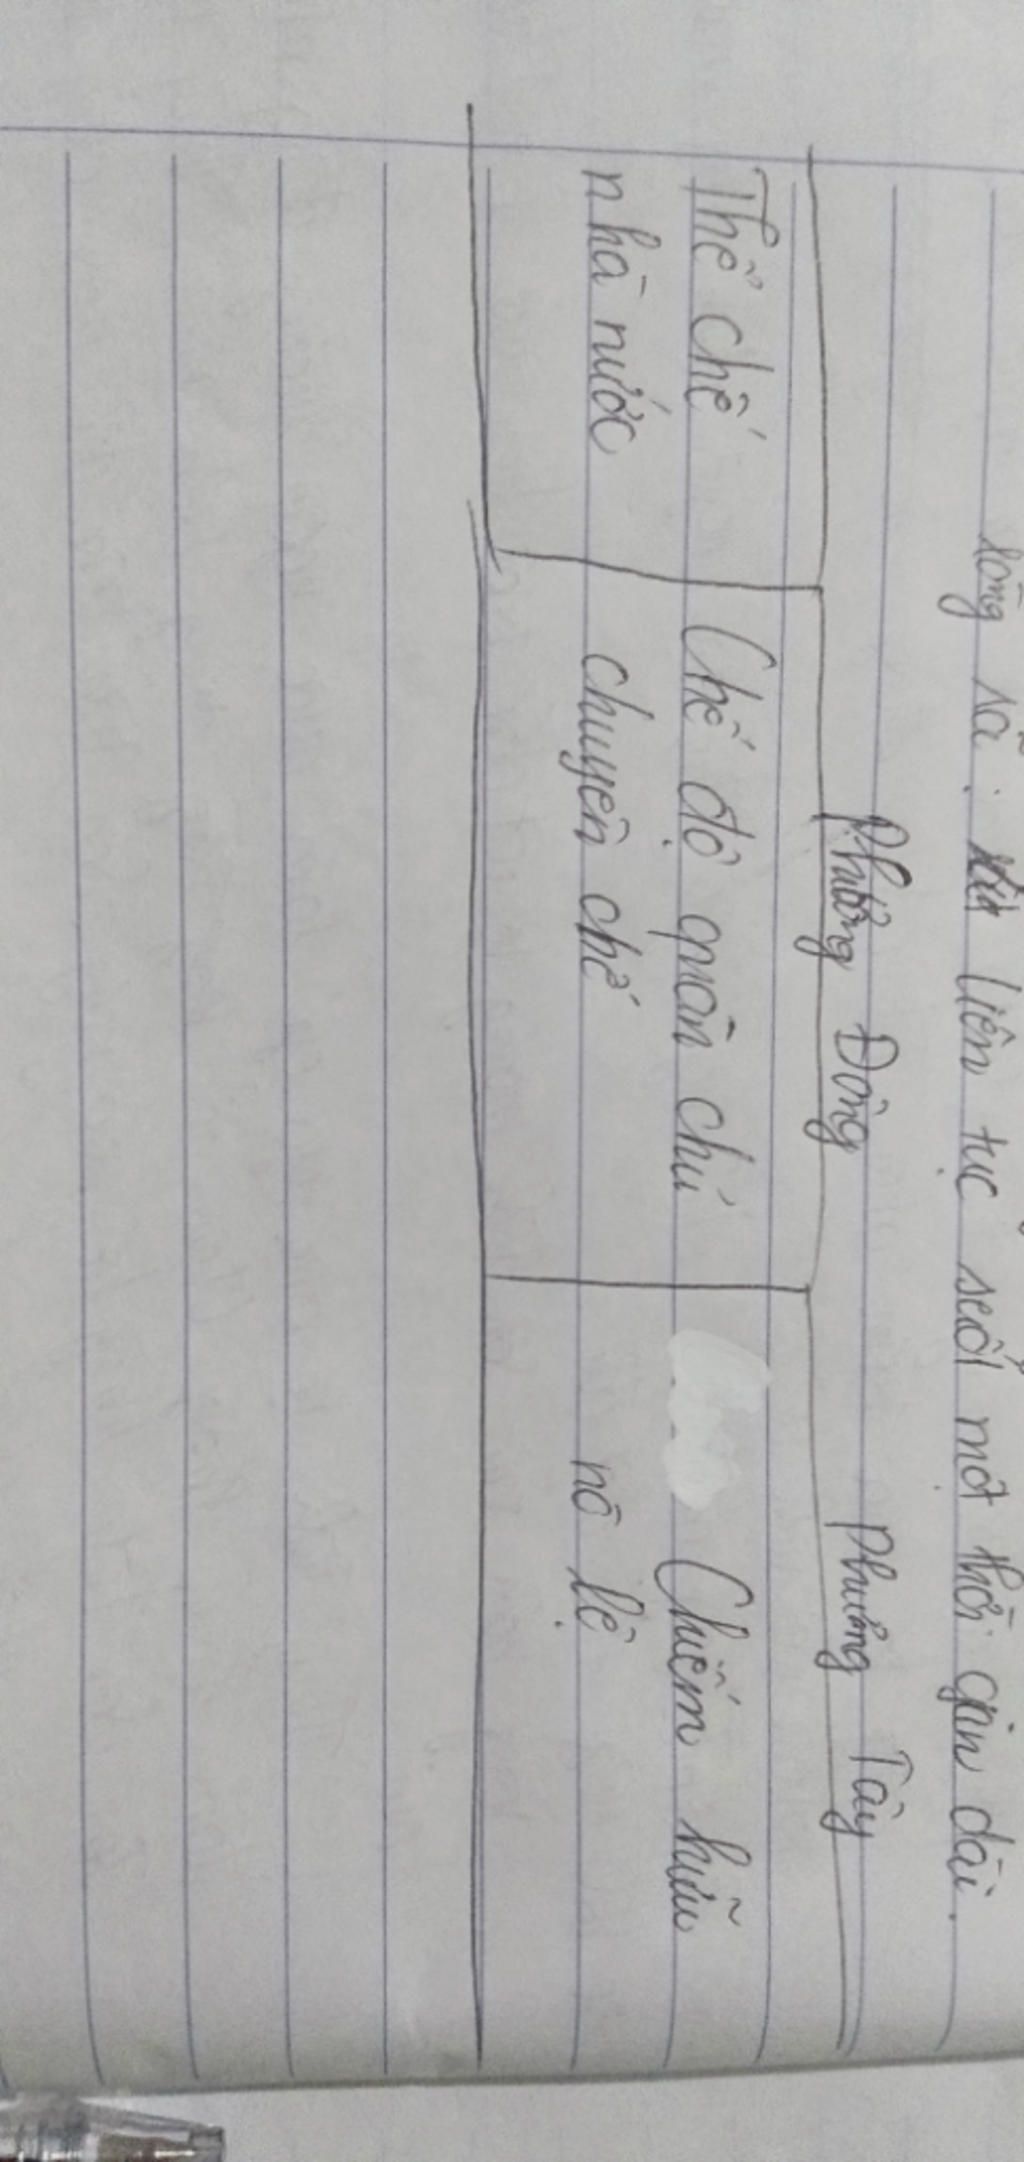 rộng rãi. liên tục suốt một thời gian dài.
Phương Đông Phương Tây
Thể chế Chế độ quân chủ Chiếm hữu
nhà nước chuyên chế nô lệ